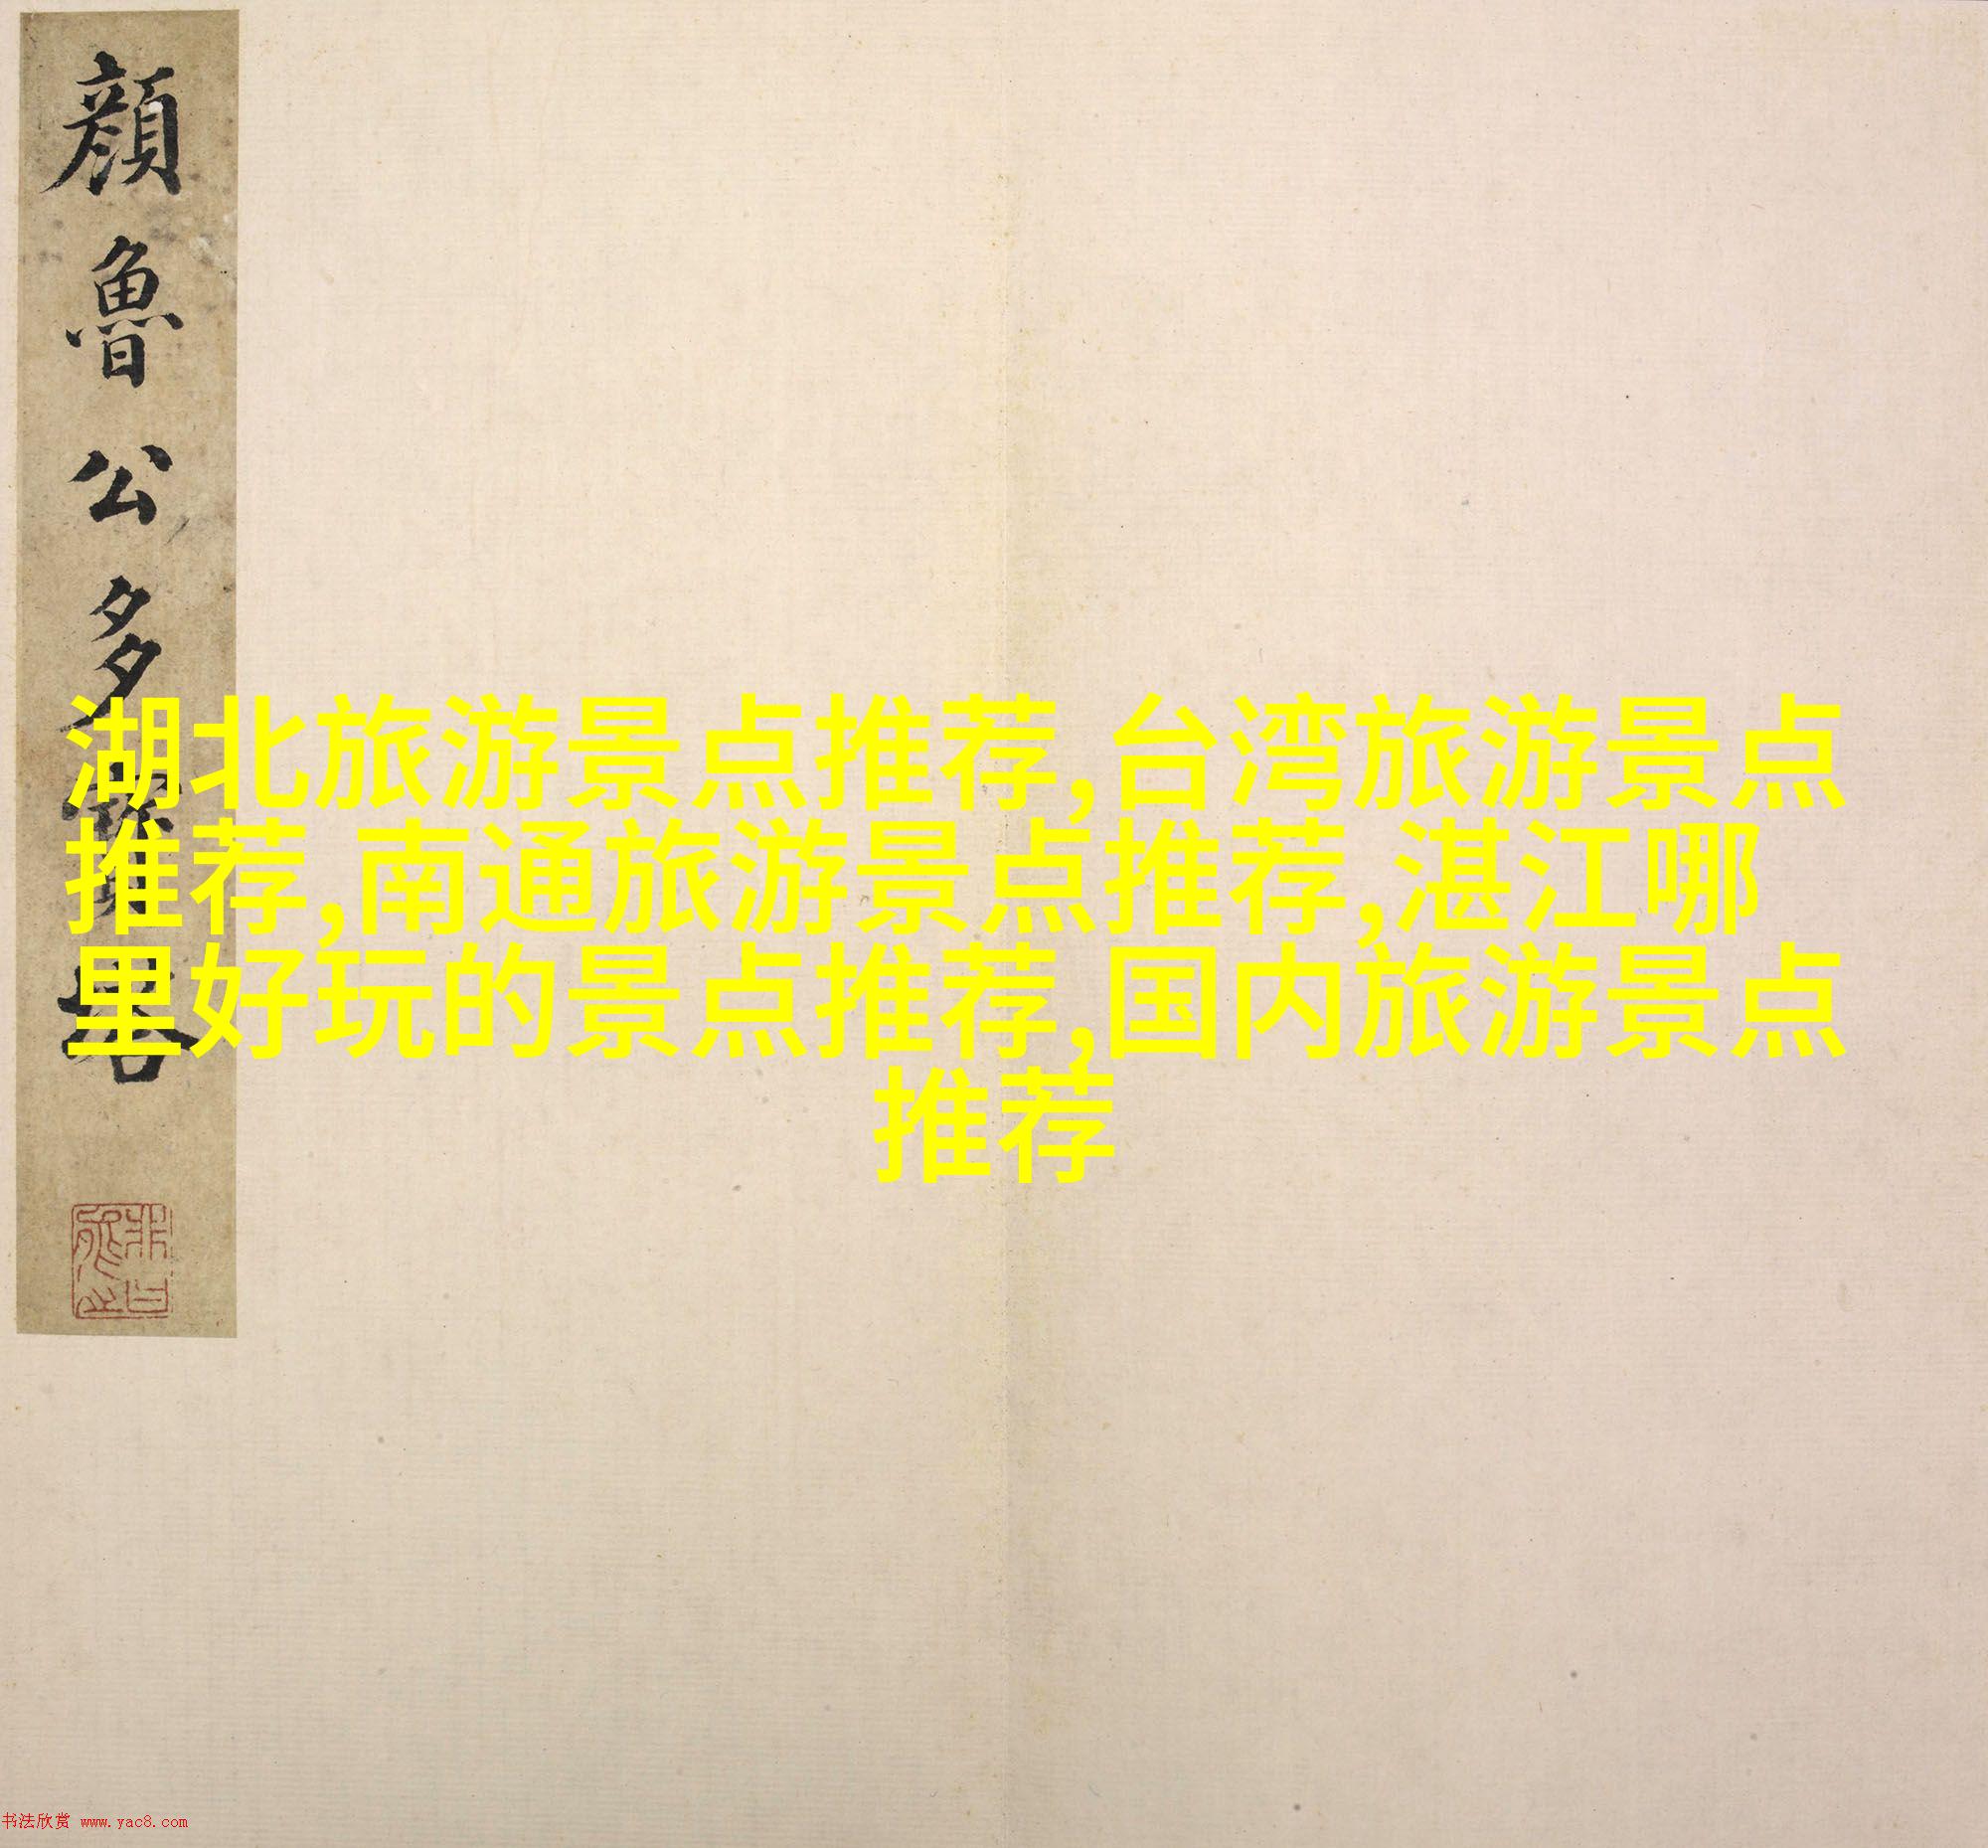 顔魯公多寶塔
湖北旅游景点推荐,台湾旅游景点
推荐,南通旅游景点推荐,湛江哪
里好玩的景点推荐,国内旅游景点
推荐
书法欣赏 www.yac8.com